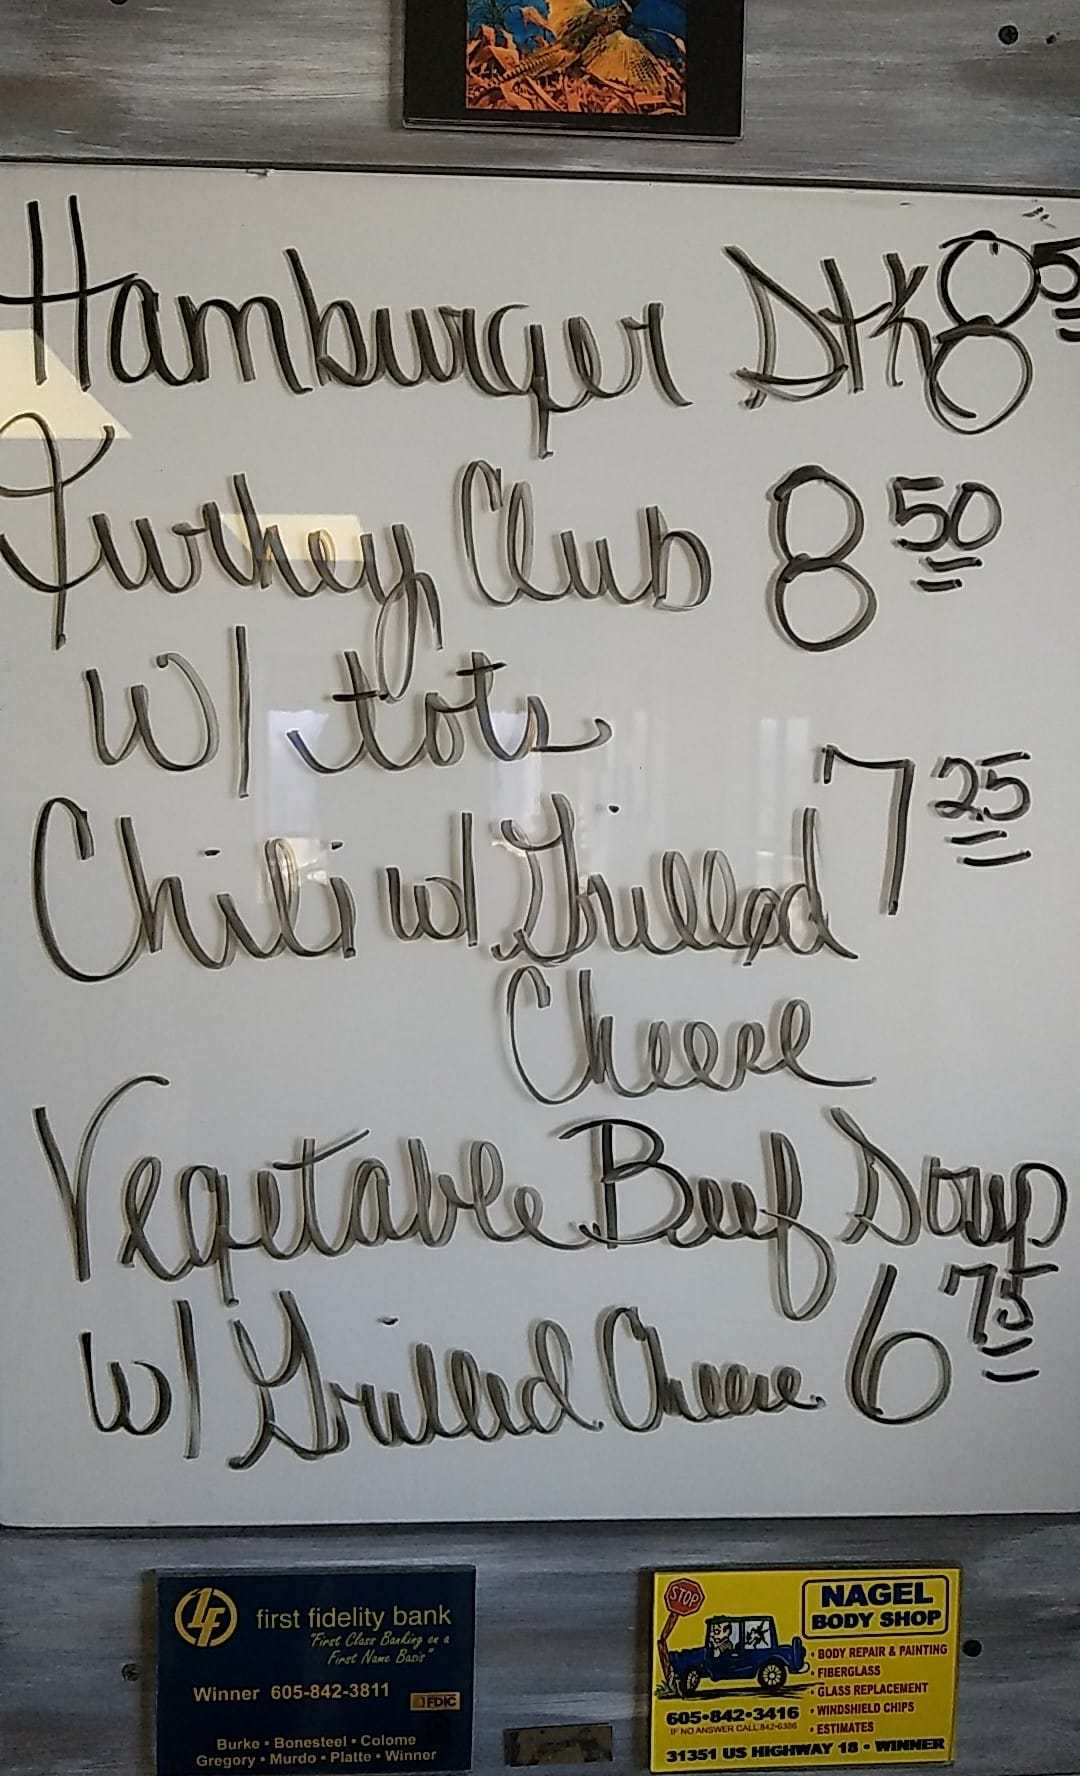 Hamburger Stk 8 5
Turkey Club 8 50
w/ tots
Chili w/ Grilled 7 25
Cheese
Vegetable Beef Soup
w/ Grilled Cheese 6 75
1F
first fidelity bank
"First Class Banking on a
First Name Basis"
Winner 605-842-3811
FDIC
Burke • Bonesteel • Colome
Gregory • Murdo • Platte • Winner
STOP
NAGEL
BODY SHOP
• BODY REPAIR & PAINTING
• FIBERGLASS
• GLASS REPLACEMENT
• WINDSHIELD CHIPS
• ESTIMATES
605•842•3416
IF NO ANSWER CALL 842-6386
31351 US HIGHWAY 18 • WINNER